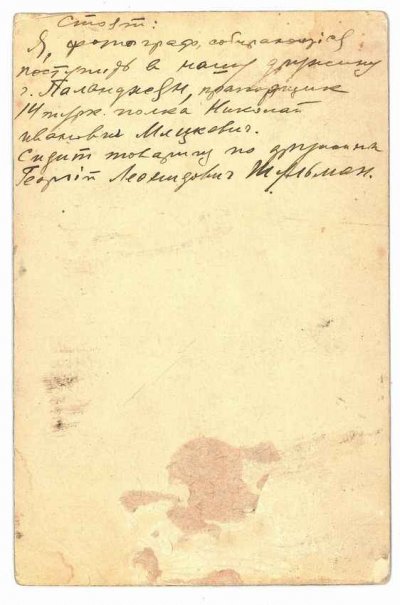 Стоят:
Я, фотограф, собирающійся
поступить в нашу дружину
г. Паланджен, прапорщик
14 турк. полка Николай
Иванович Мацкович.
Сидит товарищ по дружине
Георгій Леонидович Шульман.